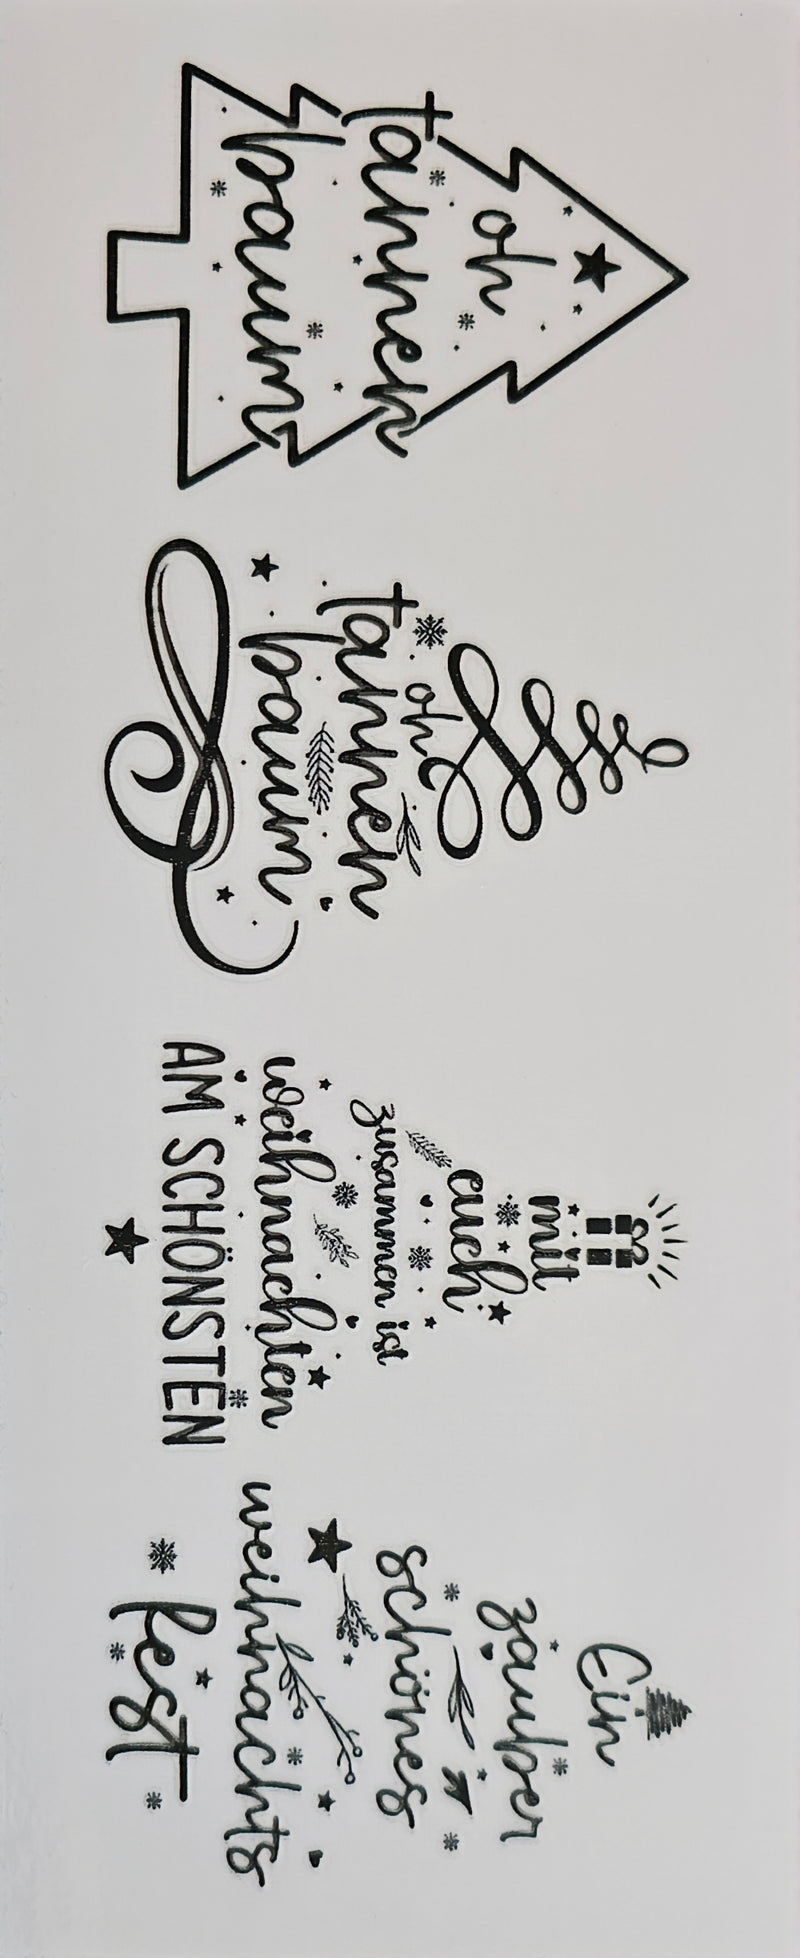 oh
tannen
baum
oh
tannen
baum
mit
euch
zusammen ist
weihnachten
AM SCHÖNSTEN
Ein
zauber
schönes
weihnachts
fest